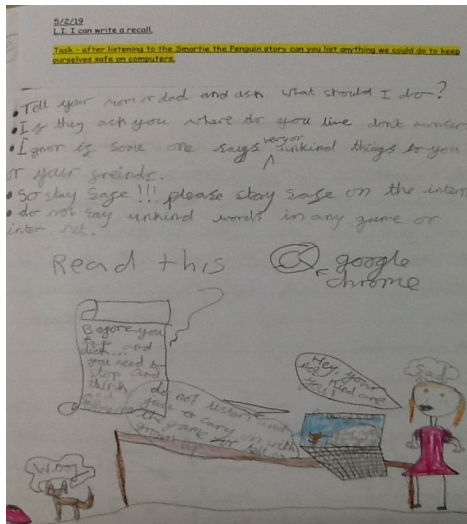 5/2/19
L.I. I can write a recall.
Task - after listening to the Smartie the Penguin story can you list anything we could do to keep
ourselves safe on computers.
• Tell your mom or dad and ask what should I do?
• If they ask you where do you live don't
• Igoor if some one says very or unkind things to you
or your freinds.
• So stay safe!!! please stay safe on the inter
• do not say unkind words in any game or
inter net.
Read this
google
chrome
Before you
and
click...
you need to
stop and
think
do not listen and
or cary on with
the game or tell a
grown up
Hey, your
not kind are
you!
Sad
Woof